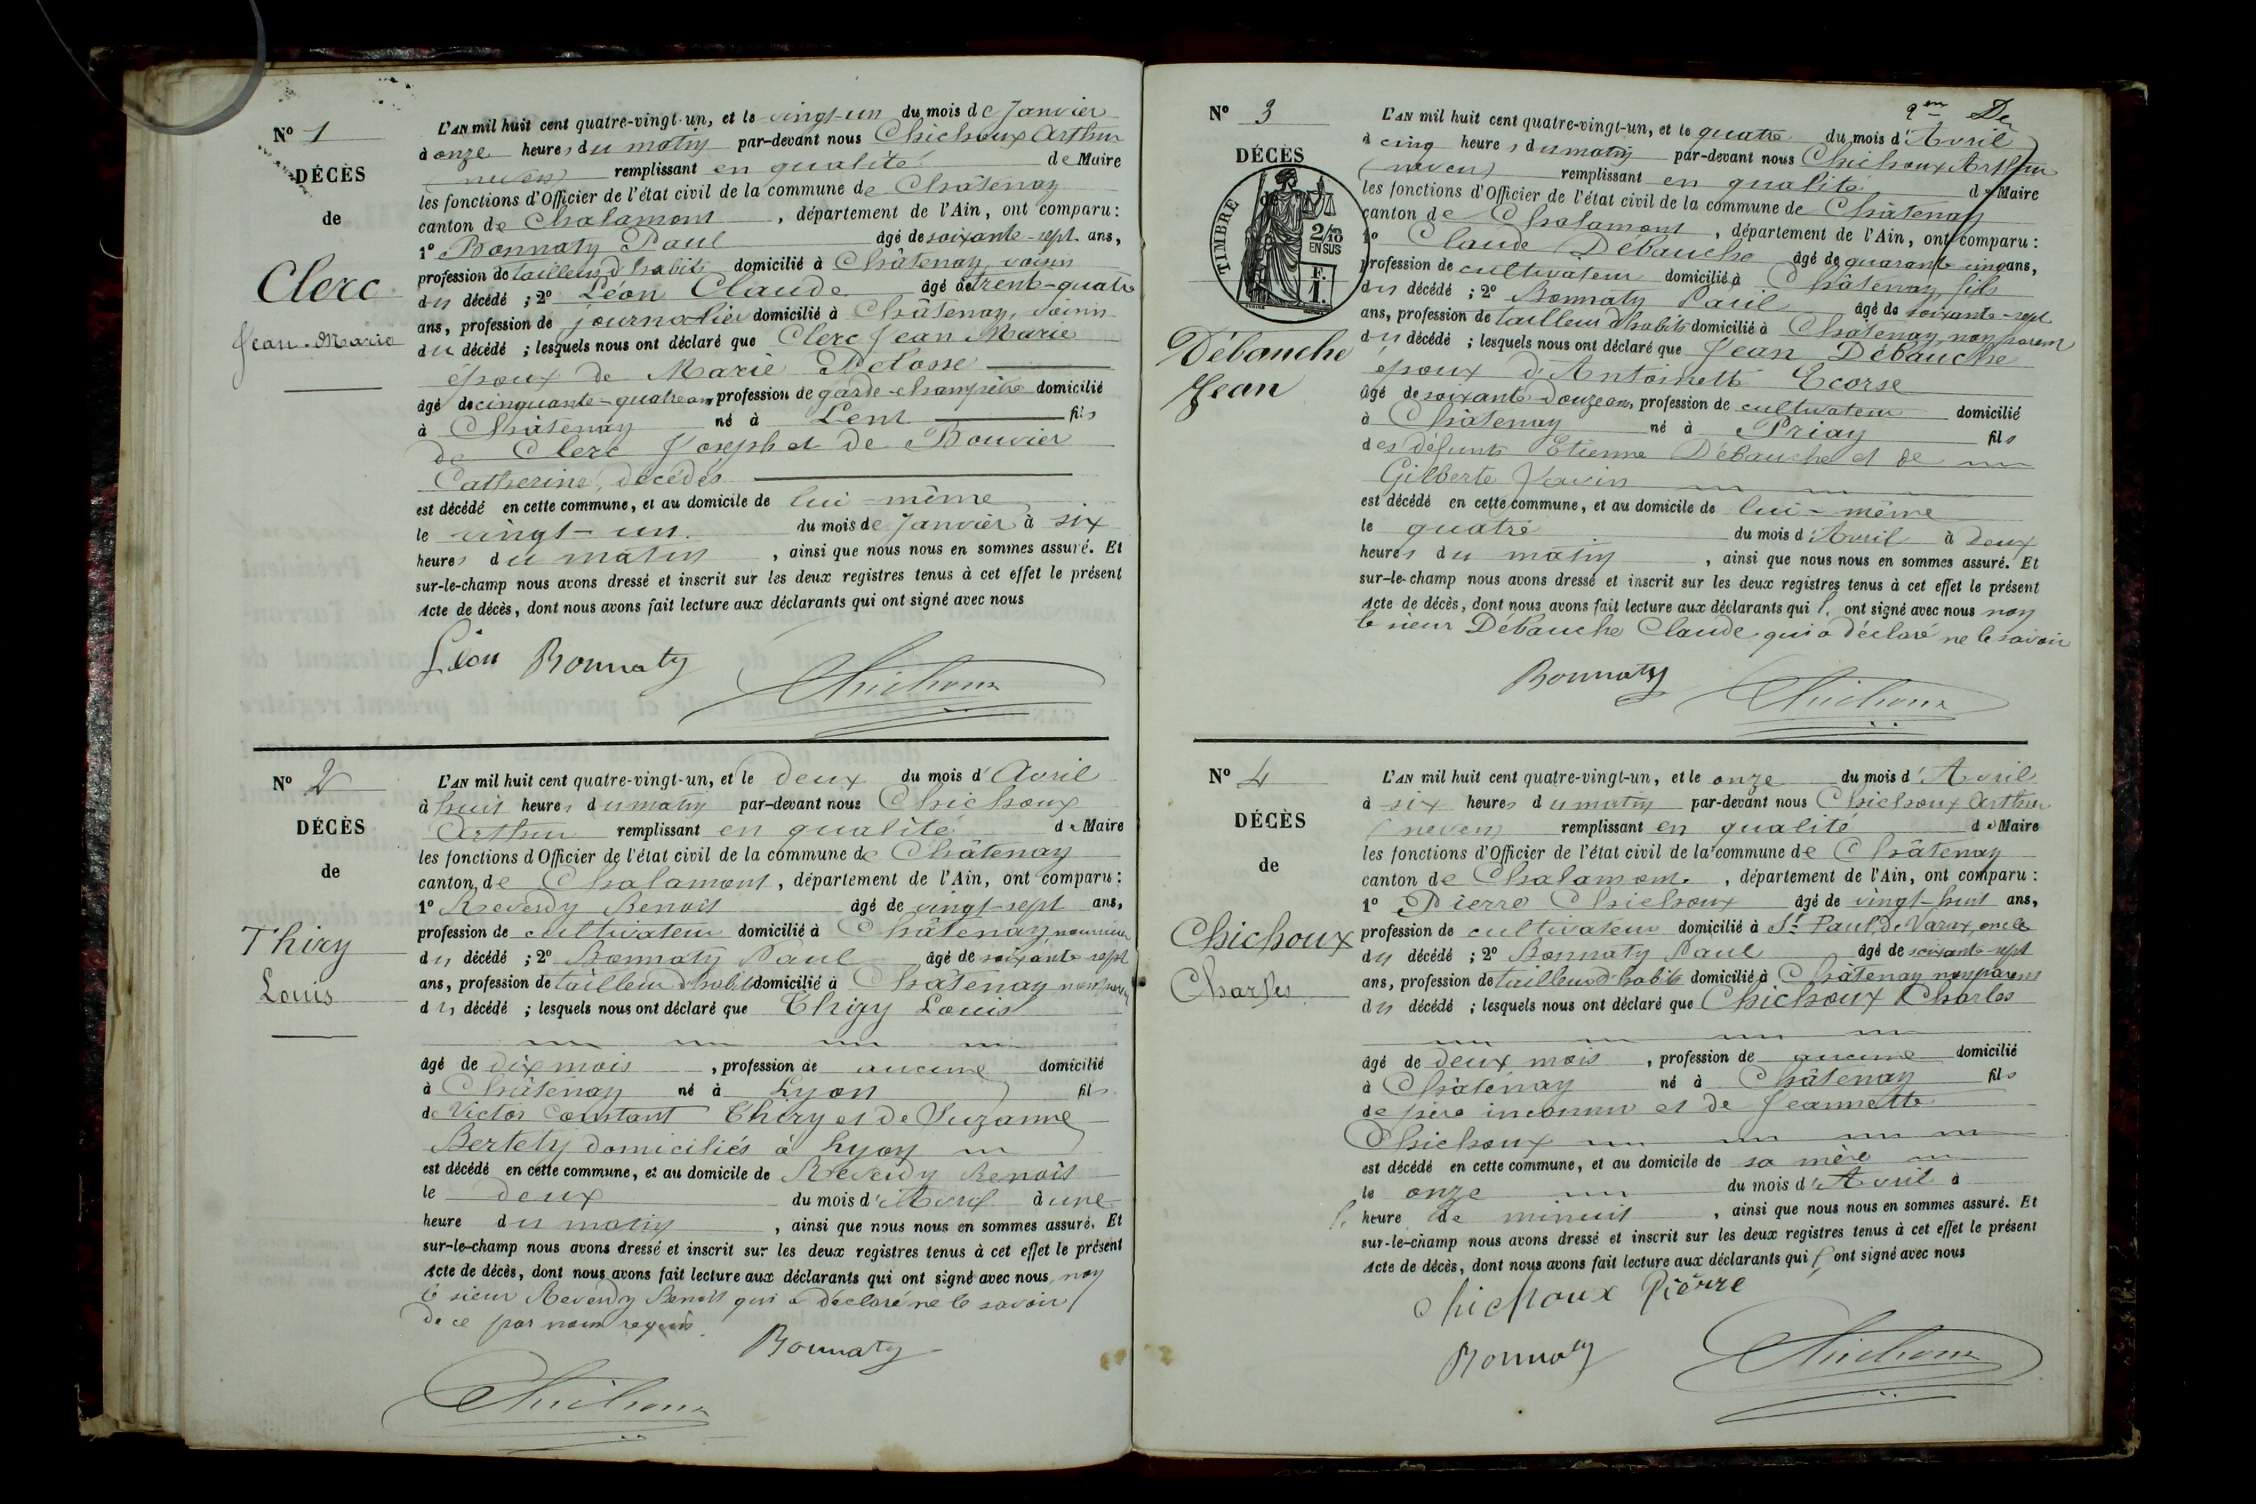 N° 1
DÉCÈS
de
Clerc
Jean-Marie
L'AN mil huit cent quatre-vingt-un, et le vingt-un du mois de Janvier
à onze heures du matin par-devant nous Chichoux Arthur
(neveu) remplissant en qualité de Maire
les fonctions d'Officier de l'état civil de la commune de Châtenay
canton de Chalamont, département de l'Ain, ont comparu:
1° Bonnaty Paul âgé de soixante-sept ans,
profession de tailleur d'habits domicilié à Châtenay, voisin
du décédé ; 2° Léon Claude âgé de trente-quatre
ans, profession de journalier domicilié à Châtenay, voisin
du décédé ; lesquels nous ont déclaré que Clerc Jean Marie
époux de Marie Pelosse
âgé de cinquante-quatre ans, profession de garde-champêtre domicilié
à Châtenay né à Lent fils
de Clerc Joseph et de Bouvier
Catherine, décédés
est décédé en cette commune, et au domicile de lui-même
le vingt-un du mois de Janvier à six
heures du matin, ainsi que nous nous en sommes assuré. Et
sur-le-champ nous avons dressé et inscrit sur les deux registres tenus à cet effet le présent
Acte de décès, dont nous avons fait lecture aux déclarants qui ont signé avec nous
Léon Bonnaty Chichoux
N° 2
DÉCÈS
de
Thiry
Louis
L'AN mil huit cent quatre-vingt-un, et le deux du mois d'Avril
à huit heures du matin par-devant nous Chichoux
Arthur remplissant en qualité de Maire
les fonctions d'Officier de l'état civil de la commune de Châtenay
canton de Chalamont, département de l'Ain, ont comparu:
1° Reverdy Benoit âgé de vingt-sept ans,
profession de cultivateur domicilié à Châtenay, nourricier
du décédé ; 2° Bonnaty Paul âgé de soixante sept
ans, profession de tailleur d'habits domicilié à Châtenay non parent
du décédé ; lesquels nous ont déclaré que Thiry Louis
âgé de dix mois, profession de aucune domicilié
à Châtenay né à Lyon fils
de Victor Constant Thiry et de Suzanne
Bertety domiciliés à Lyon
est décédé en cette commune, et au domicile de Reverdy Benoit
le deux du mois d'Avril à une
heure du matin, ainsi que nous nous en sommes assuré. Et
sur-le-champ nous avons dressé et inscrit sur les deux registres tenus à cet effet le présent
Acte de décès, dont nous avons fait lecture aux déclarants qui ont signé avec nous, non
le sieur Reverdy Benoit qui a déclaré ne le savoir
de ce par nous requis.
Bonnaty
Chichoux
2me De
N° 3
DÉCÈS
de
TIMBRE
2/10
EN SUS
F.
1.
Débauche
Jean
L'AN mil huit cent quatre-vingt-un, et le quatre du mois d'Avril
à cinq heures du matin par-devant nous Chichoux Arthur
(neveu) remplissant en qualité de Maire
les fonctions d'Officier de l'état civil de la commune de Châtenay
canton de Chalamont, département de l'Ain, ont comparu:
1° Claude Débauche âgé de quarante cinq ans,
profession de cultivateur domicilié à Châtenay, fils
du décédé ; 2° Bonnaty Paul âgé de soixante-sept
ans, profession de tailleur d'habits domicilié à Châtenay, non parent
du décédé ; lesquels nous ont déclaré que Jean Débauche
époux d'Antoinette Ecorse
âgé de soixante-douze ans, profession de cultivateur domicilié
à Châtenay né à Priay fils
des défunts Etienne Débauche et de
Gilberte
est décédé en cette commune, et au domicile de lui-même
le quatre du mois d'Avril à deux
heures du matin, ainsi que nous nous en sommes assuré. Et
sur-le-champ nous avons dressé et inscrit sur les deux registres tenus à cet effet le présent
Acte de décès, dont nous avons fait lecture aux déclarants qui ont signé avec nous non
le sieur Débauche Claude qui a déclaré ne le savoir
Bonnaty Chichoux
N° 4
DÉCÈS
de
Chichoux
Charles
L'AN mil huit cent quatre-vingt-un, et le onze du mois d'Avril
à six heures du matin par-devant nous Chichoux Arthur
(neveu) remplissant en qualité de Maire
les fonctions d'Officier de l'état civil de la commune de Châtenay
canton de Chalamont, département de l'Ain, ont comparu:
1° Pierre Chichoux âgé de vingt-huit ans,
profession de cultivateur domicilié à St Paul de Varax, oncle
du décédé ; 2° Bonnaty Paul âgé de soixante-sept
ans, profession de tailleur d'habits domicilié à Châtenay non parent
du décédé ; lesquels nous ont déclaré que Chichoux Charles
âgé de deux mois, profession de aucune domicilié
à Châtenay né à Châtenay fils
de père inconnu et de Jeannette
Chichoux
est décédé en cette commune, et au domicile de sa mère
le onze du mois d'Avril à
l'heure de minuit, ainsi que nous nous en sommes assuré. Et
sur-le-champ nous avons dressé et inscrit sur les deux registres tenus à cet effet le présent
Acte de décès, dont nous avons fait lecture aux déclarants qui ont signé avec nous
Chichoux Pierre
Bonnaty Chichoux